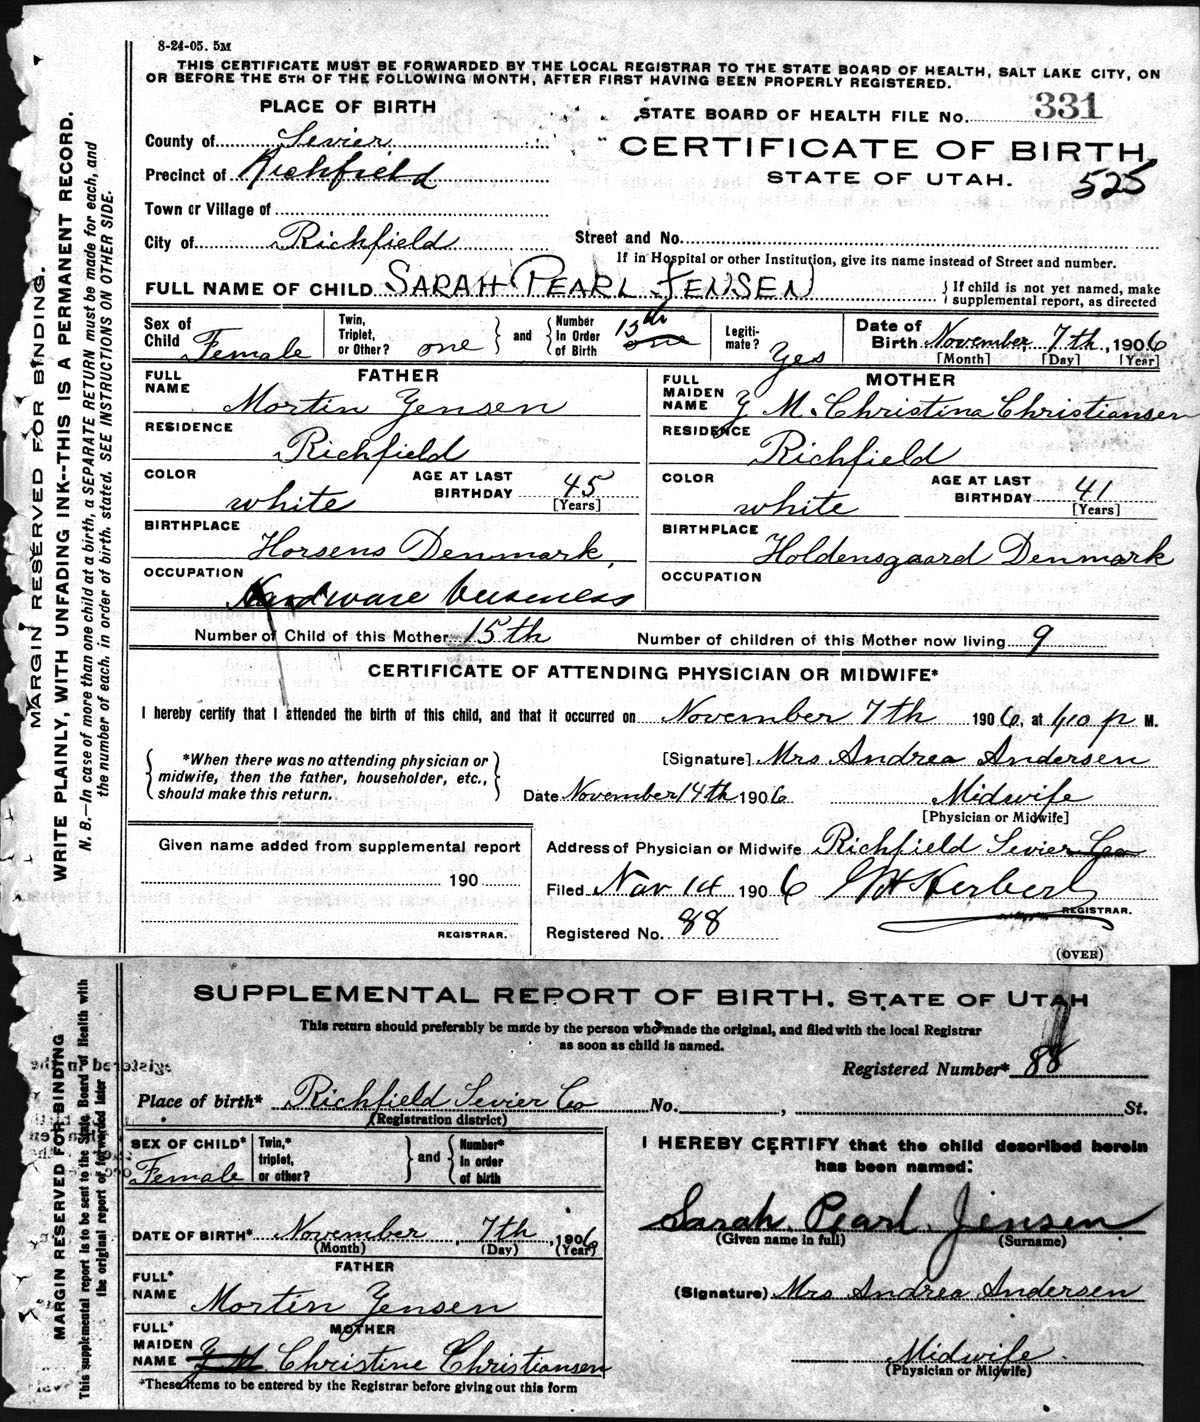 8-24-05. 5M
THIS CERTIFICATE MUST BE FORWARDED BY THE LOCAL REGISTRAR TO THE STATE BOARD OF HEALTH, SALT LAKE CITY, ON
OR BEFORE THE 5TH OF THE FOLLOWING MONTH, AFTER FIRST HAVING BEEN PROPERLY REGISTERED.
MARGIN RESERVED FOR BINDING.
WRITE PLAINLY, WITH UNFADING INK--THIS IS A PERMANENT RECORD.
N. B.—In case of more than one child at a birth, a SEPARATE RETURN must be made for each, and
the number of each, in order of birth, stated. SEE INSTRUCTIONS ON OTHER SIDE.
PLACE OF BIRTH
County of Sevier
Precinct of Richfield
Town or Village of
City of Richfield
STATE BOARD OF HEALTH FILE No. 331
CERTIFICATE OF BIRTH
STATE OF UTAH. 525
Street and No.
If in Hospital or other Institution, give its name instead of Street and number.
FULL NAME OF CHILD SARAH PEARL JENSEN { If child is not yet named, make supplemental report, as directed
Sex of Child Female
Twin, Triplet, or Other? one } and { Number in Order of Birth 15th one
Legiti-mate? Yes
Date of Birth November 7th, 1906
[Month] [Day] [Year]
FATHER
FULL NAME Mortin Yensen
RESIDENCE Richfield
COLOR white AGE AT LAST BIRTHDAY 45 [Years]
BIRTHPLACE Horsens Denmark,
OCCUPATION Hardware business
MOTHER
FULL MAIDEN NAME Y M. Christina Christiansen
RESIDENCE Richfield
COLOR white AGE AT LAST BIRTHDAY 41 [Years]
BIRTHPLACE Holdensgaard Denmark
OCCUPATION
Number of Child of this Mother 15th Number of children of this Mother now living 9
CERTIFICATE OF ATTENDING PHYSICIAN OR MIDWIFE*
I hereby certify that I attended the birth of this child, and that it occurred on November 7th 1906, at 410 p M.
{ *When there was no attending physician or midwife, then the father, householder, etc., should make this return. }
[Signature] Mrs Andrea Andersen
Date November 14th 1906 Midwife
[Physician or Midwife]
Given name added from supplemental report
190
REGISTRAR.
Address of Physician or Midwife Richfield Sevier Co
Filed Nov 14 1906 Herbert
REGISTRAR.
Registered No. 88
(OVER)
MARGIN RESERVED FOR BINDING
This supplemental report is to be sent to the State Board of Health with
the original report or forwarded later
SUPPLEMENTAL REPORT OF BIRTH. STATE OF UTAH
This return should preferably be made by the person who made the original, and filed with the local Registrar
as soon as child is named.
Registered Number* 88
Place of birth* Richfield Sevier Co No. , St.
(Registration district)
SEX OF CHILD* Female
Twin,* triplet, or other? } and { Number* in order of birth
DATE OF BIRTH* November 7th, 1906
(Month) (Day) (Year)
FATHER
FULL* NAME Mortin Yensen
MOTHER
FULL* MAIDEN NAME Y M Christine Christiansen
*These items to be entered by the Registrar before giving out this form
I HEREBY CERTIFY that the child described herein
has been named:
Sarah Pearl Jensen
(Given name in full) (Surname)
(Signature) Mrs Andrea Andersen
Midwife
(Physician or Midwife)